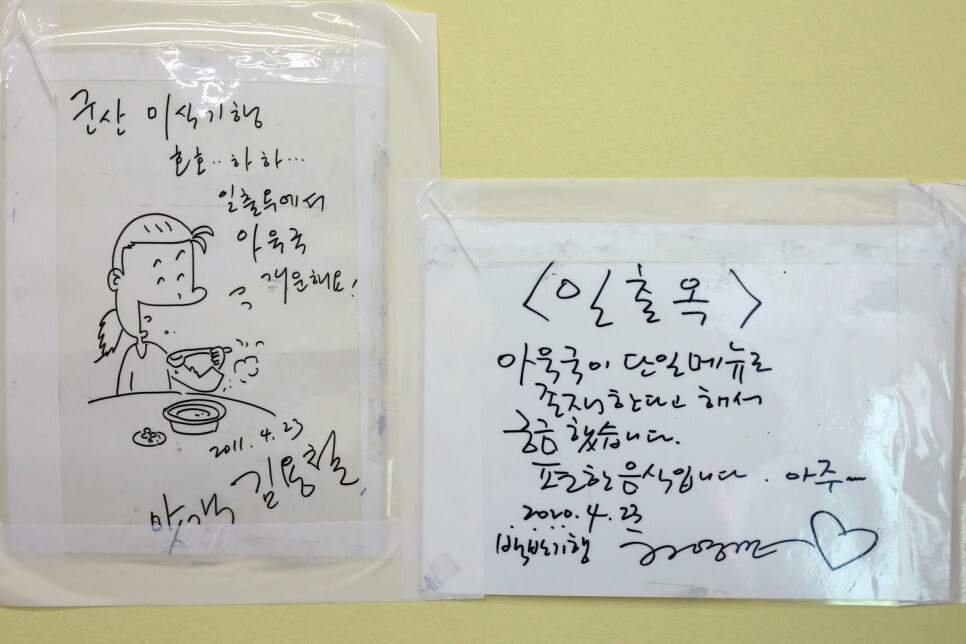 군산 미식기행
호호..하하...
일출옥에서
아욱국
개운해요!
2011.4.23
김용철
맛객
<일출옥>
아욱국이 단일메뉴로
존재한다고 해서
궁금했습니다.
편한음식입니다. 아주~
2020.4.23
백반기행